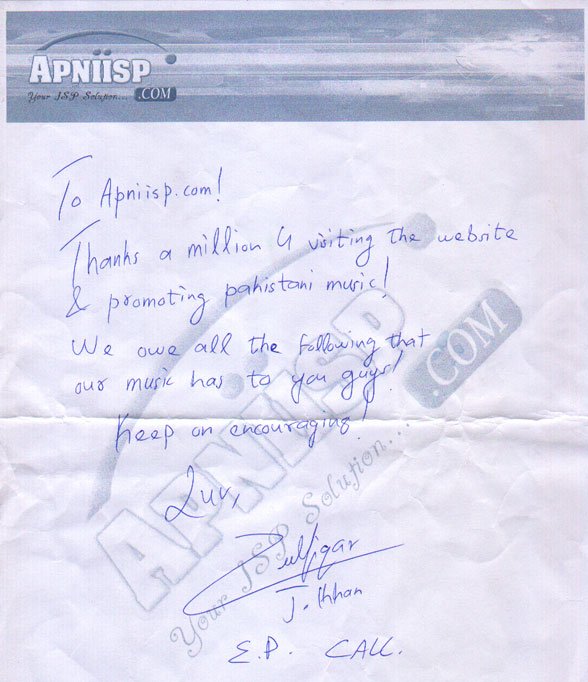 APNIISP
Your ISP Solution... .COM
To Apniisp.com!
Thanks a million 4 visiting the website
& promoting pakistani music!
We owe all the following that
our music has to you guys!
Keep on encouraging!
Luv,
Zulfiqar
J. Khan
E.P. CALL.
APNIISP
.COM
Your ISP Solution...